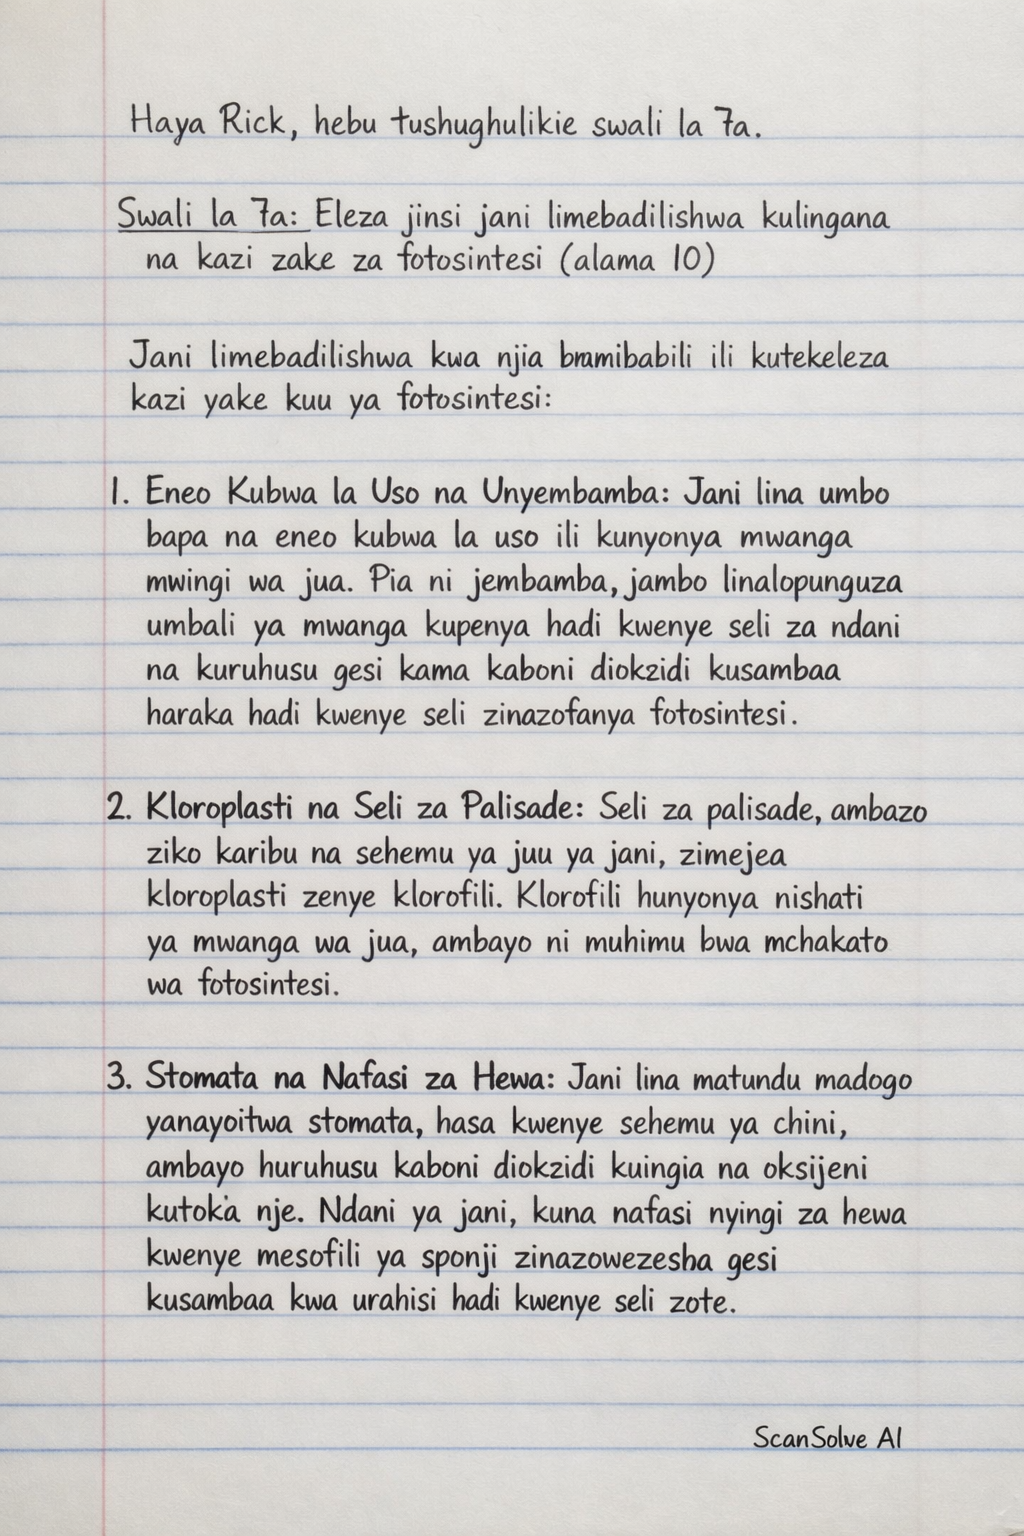 Haya Rick, hebu tushughulikie swali la 7a.
Swali la 7a: Eleza jinsi jani limebadilishwa kulingana
na kazi zake za fotosintesi (alama 10)
Jani limebadilishwa kwa njia bramibabili ili kutekeleza
kazi yake kuu ya fotosintesi:
1. Eneo Kubwa la Uso na Unyembamba: Jani lina umbo
bapa na eneo kubwa la uso ili kunyonya mwanga
mwingi wa jua. Pia ni jembamba, jambo linalopunguza
umbali ya mwanga kupenya hadi kwenye seli za ndani
na kuruhusu gesi kama kaboni diokzidi kusambaa
haraka hadi kwenye seli zinazofanya fotosintesi.
2. Kloroplasti na Seli za Palisade: Seli za palisade, ambazo
ziko karibu na sehemu ya juu ya jani, zimejea
kloroplasti zenye klorofili. Klorofili hunyonya nishati
ya mwanga wa jua, ambayo ni muhimu bwa mchakato
wa fotosintesi.
3. Stomata na Nafasi za Hewa: Jani lina matundu madogo
yanayoitwa stomata, hasa kwenye sehemu ya chini,
ambayo huruhusu kaboni diokzidi kuingia na oksijeni
kutoka nje. Ndani ya jani, kuna nafasi nyingi za hewa
kwenye mesofili ya sponji zinazowezesha gesi
kusambaa kwa urahisi hadi kwenye seli zote.
ScanSolve AI